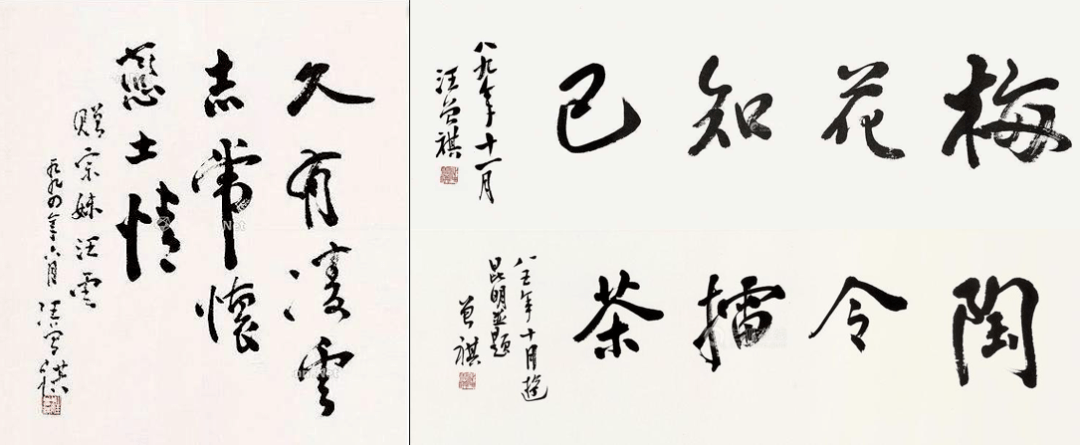 久有凌雲
志常懷
戀土情
贈宗妹汪雲
一九九四年六月 汪曾祺
梅花知己
八九年十一月
汪曾祺
陶令擂茶
八五年十月遊
昆明並題
曾祺